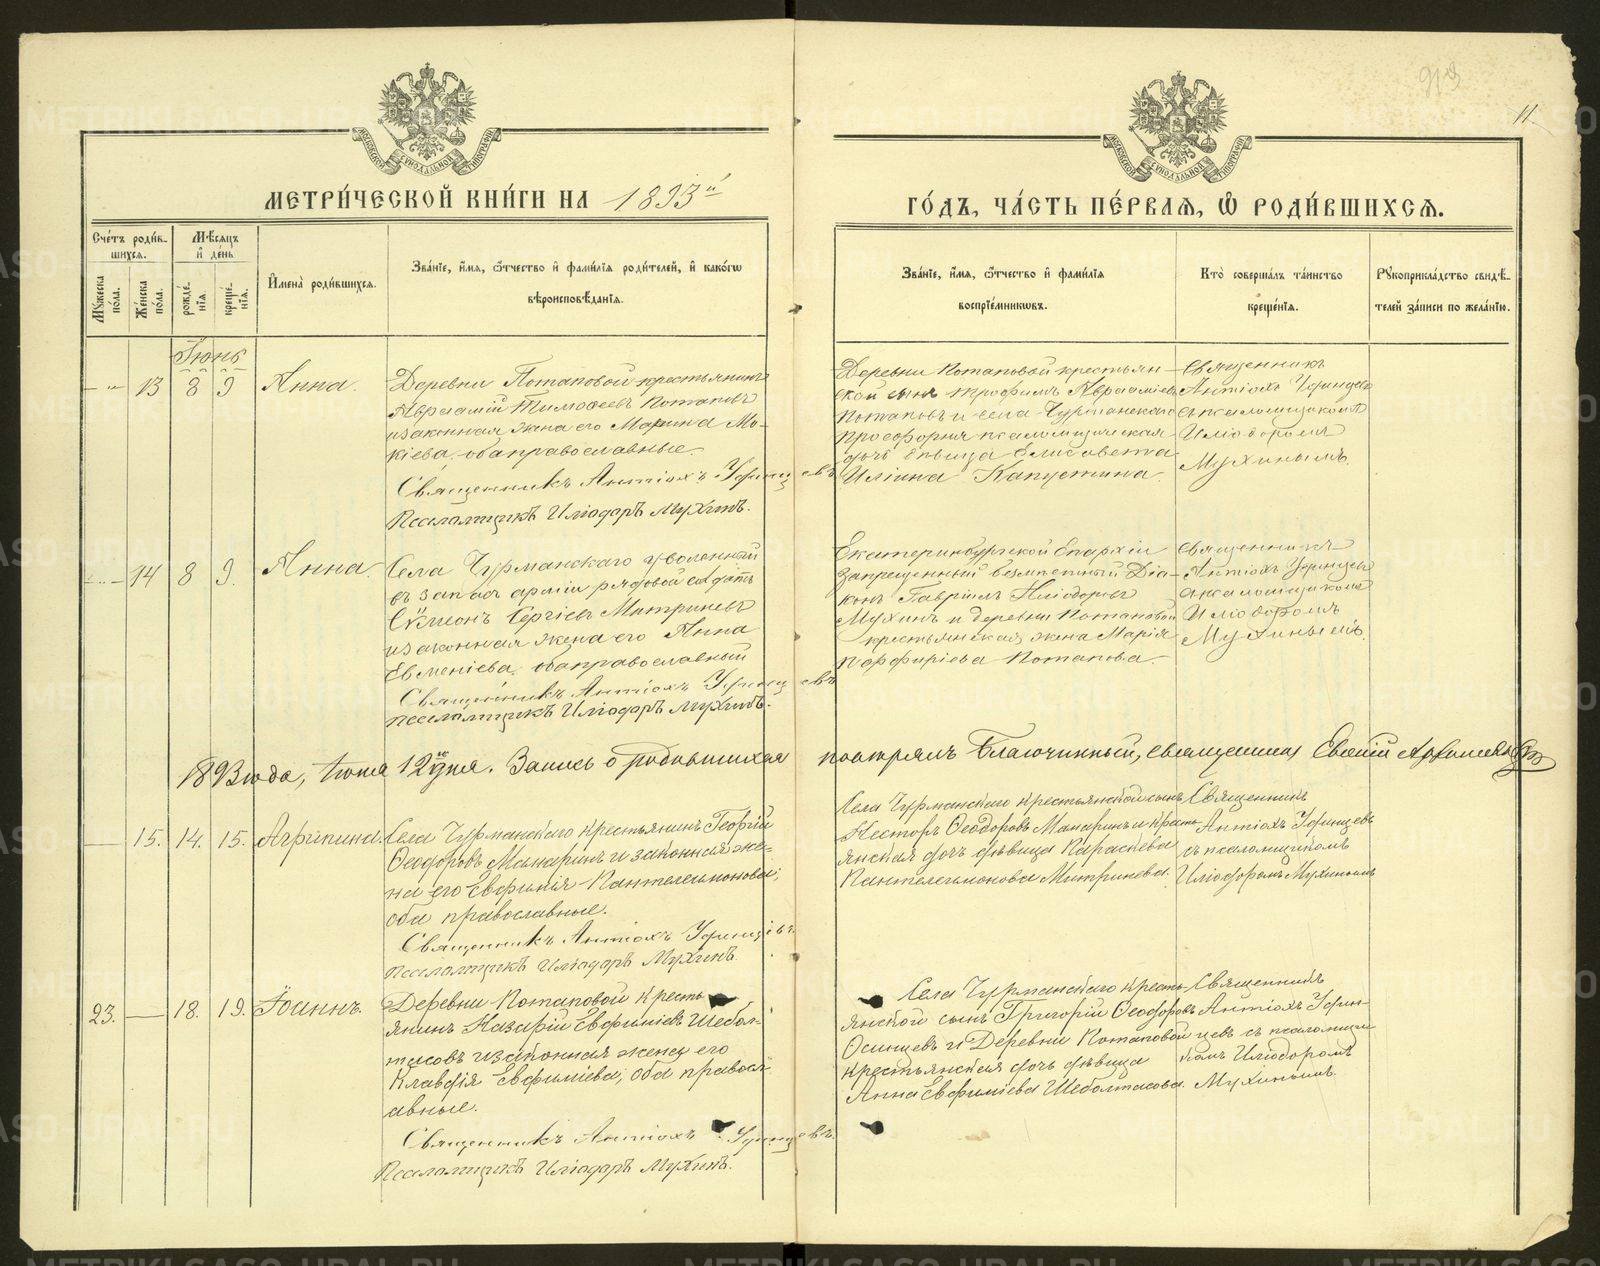 913
11
МОСКОВСКОЙ СѴНОДАЛЬНОЙ ТИПОГРАФІИ
МОСКОВСКОЙ СѴНОДАЛЬНОЙ ТИПОГРАФІИ
МЕТРИ́ЧЕСКОЙ КНИ́ГИ НА 1893й
ГО́ДЪ, ЧА́СТЬ ПЕ́РВАЯ, Ѡ РОДИ́ВШИХСЯ.
Сче́тъ роди́в-
шихся.
Мꙋжеска по́ла.
Же́нска по́ла.
Мѣ́сяцъ
и де́нь
рожде́нїя
креще́нїя.
И҆мена̀ роди́вшихся.
Зва́нїе, и҆́мя, ѻ҆́тчество и҆ фами́лїя роди́телей, и҆ како́гѡ
вѣроисповѣ́данїя.
Зва́нїе, и҆́мя, ѻ҆́тчество и҆ фами́лїя
воспрїе́мникѡвъ.
Кто̀ соверша́лъ та́инство
креще́нїя.
Рꙋкоприкла́дство свидѣ́-
телей за́писи по жела́нїю.
Іюнь
13 8 9 Анна.
Деревни Потаповой крестьянинъ
Авраамій Тимофеевъ Потаповъ
и законная жена его Марина Мо-
кіева. оба православные.
Священникъ Антіохъ Уфинцевъ
Псаломщикъ Иліодоръ Мухинъ.
Деревни Потаповой крестьян-
ской сынъ Трофимъ Аврааміевъ
Потаповъ и села Чурманскаго
просфорня псаломщическая
дочь девица Елисавета
Иліина Капустина.
Священникъ
Антіохъ Уфинцевъ
с псаломщикомъ
Иліодоромъ
Мухинымъ.
14 8 9. Анна.
Села Чурманскаго уволенный
въ запасъ арміи рядовой солдатъ
Сѵмеонъ Сергіевъ Митриневъ
и законная жена его Анна
Евменіева. оба православный
Священникъ Антіохъ Уфинцевъ
псаломщикъ Иліодоръ Мухинъ.
Екатеринбургской Епархіи
Запрещенный безместный Діа-
конъ Гавріилъ Иліодоровъ
Мухинъ и деревни Потаповой
крестьянская жена Марія
Порфиріева Потапова.
Священникъ
Антіохъ Уфинцевъ
с псаломщикомъ
Иліодоромъ
Мухинымъ.
1893 года, Іюня 12 дня. Запись о родившихся повѣрялъ Благочинный, священникъ
15. 14. 15. Агрипина.
Села Чурманскаго крестьянинъ Георгій
Ѳеодоровъ Макаринъ и законная же-
на его Евфимія Кантелеимонова;
оба православные.
Священникъ Антіохъ Уфинцевъ.
Псаломщикъ Иліодоръ Мухинъ.
Села Чурманскаго крестьянской сынъ
Несторъ Ѳеодоровъ Макаринъ и кресть-
янская дочь дѣвица Параскева
Пантелеимонова Митринева.
Священникъ
Антіохъ Уфинцевъ
съ псаломщикомъ
Иліодоромъ Мухинымъ
23. 18. 19. Іоаннъ.
Деревни Потаповой кресть-
янинъ Назарій Евфиміевъ Шебол-
тасовъ и законная жена его
Клавдія Евфиміева; оба правосл-
авные.
Священникъ Антіохъ Уфинцевъ.
Псаломщикъ Иліодоръ Мухинъ.
Села Чурманскаго кресть-
янской сынъ Григорій Ѳеодоровъ
Осинцевъ и Деревни Потаповой
крестьянская дочь дѣвица
Анна Евфиміева Шеболтасова.
Священникъ
Антіохъ Уфин-
цевъ съ псаломщи-
комъ Иліодоромъ
Мухинымъ.